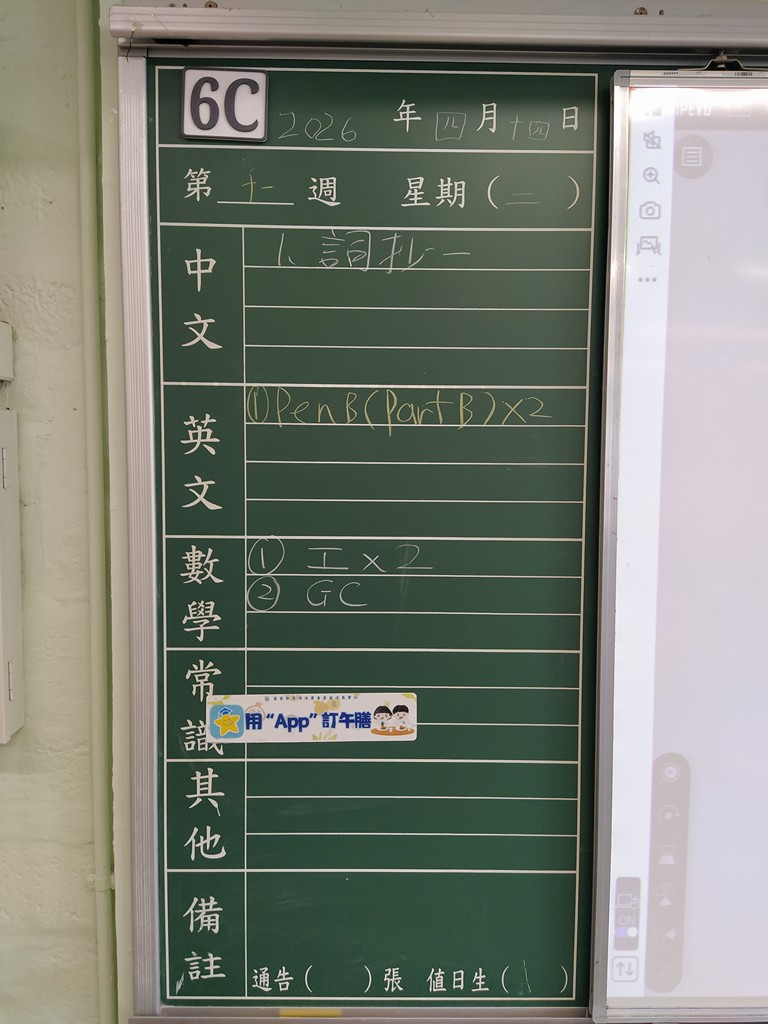 6C 2026 年 四 月 十四 日
第 十一 週 星期（二）
中文
1、詞抄一
英文
① Pen B (Part B) x2
數學
① 工 x 2
② GC
常識
用“App”訂午膳
其他
備註
通告（ ）張 值日生（ ）
IPEVO
ON